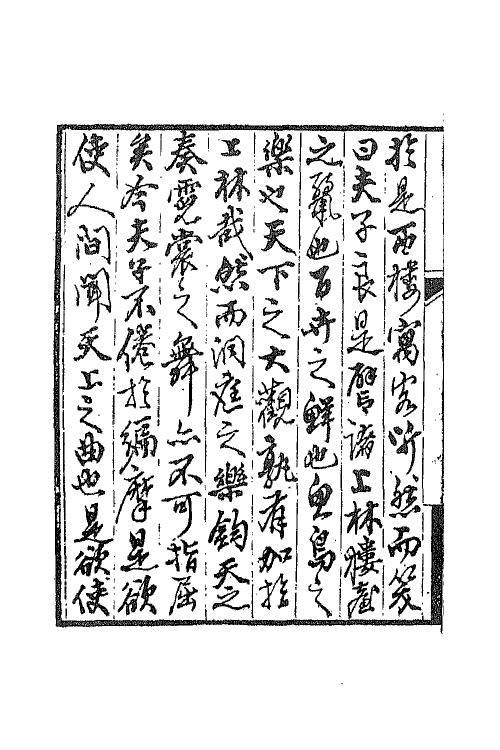 於是西樓寓客听然而笑
曰夫子之言良是譬諸上林樓臺
之麗也百卉之鮮也魚鳥之
樂也天下之大觀孰有加於
上林哉然而洞庭之樂鈞天之
奏霓裳之舞亦不可指屈
矣今夫子不倦於編摩是欲
使人間聞天上之曲也是欲使